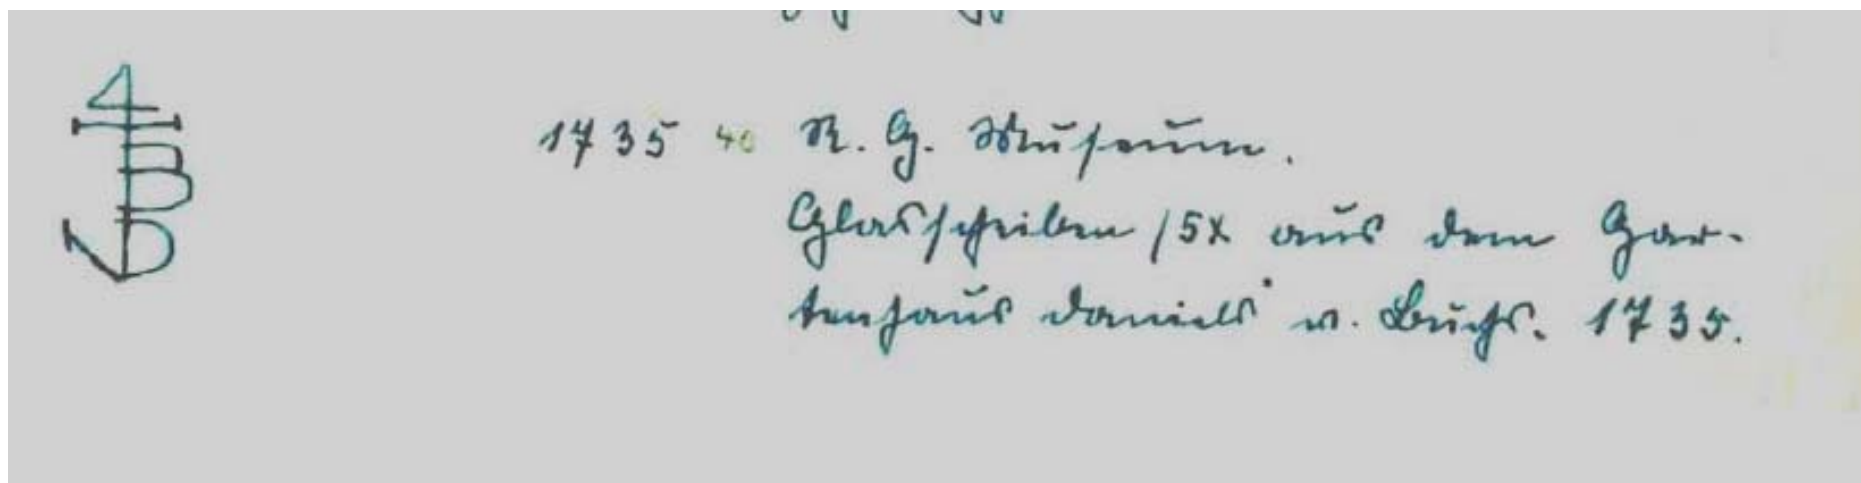 1735 40 R. G. Museum.
Glasscheiben /5x aus dem Gar-
tenhaus Daniels v. Buchs. 1735.